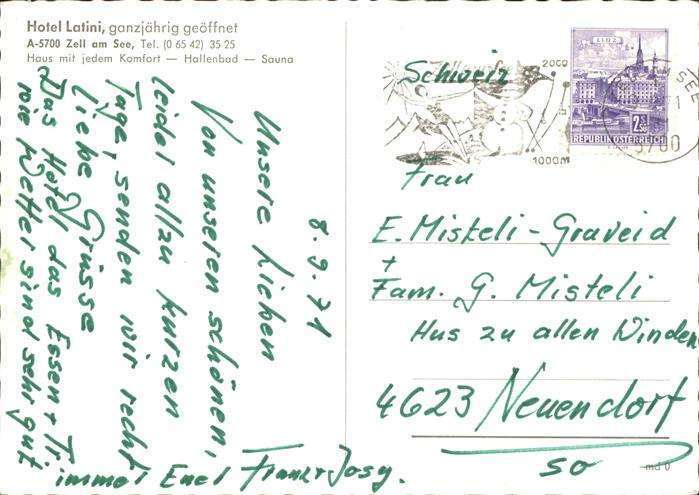 Hotel Latini, ganzjährig geöffnet
A-5700 Zell am See, Tel. (0 65 42) 35 25
Haus mit jedem Komfort — Hallenbad — Sauna
8.9.71
Unsere Lieben
Von unseren schönen,
leider allzu kurzen
Tage, senden wir recht
liebe Grüsse
Das Hotel das Essen +
wie Wetter sind sehr gut
immer Euel Franz-Josy.
LINZ
2.50
REPUBLIK ÖSTERREICH
2000
1000M
SEE
5700
Schweiz
Frau
E. Miskeli-Graveid
+
Fam. G. Misteli
Hus zu allen Winden
4623 Neuendorf
SO
md 0